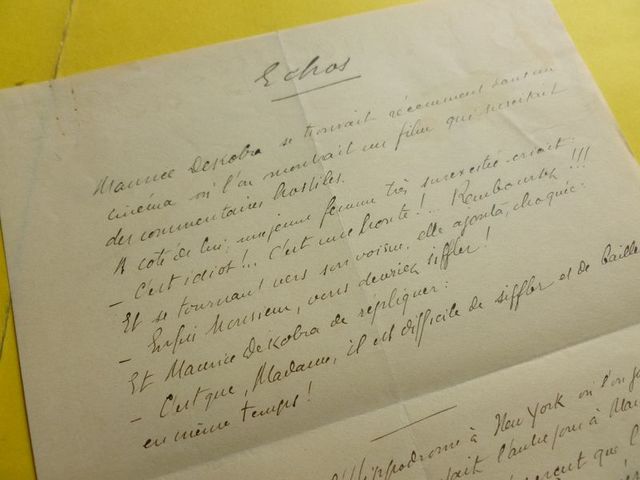 Echos
Maurice Dekobra se trouvait récemment dans un
cinema où l'on montrait un film qui suscitait
des commentaires hostiles.
A coté de lui, une jeune femme très surexcitée criait:
- C'est idiot!.. C'est une honte!.. Remboursez!!!
Et se tournant vers son voisin, elle ajouta, choquée:
- Enfin Monsieur, vous devriez siffler!
Et Maurice Dekobra de répliquer:
- C'est que, Madame, il est difficile de siffler et de bailler
en même temps!
Hippodrome à New York où l'on
l'autre jour à
que l'